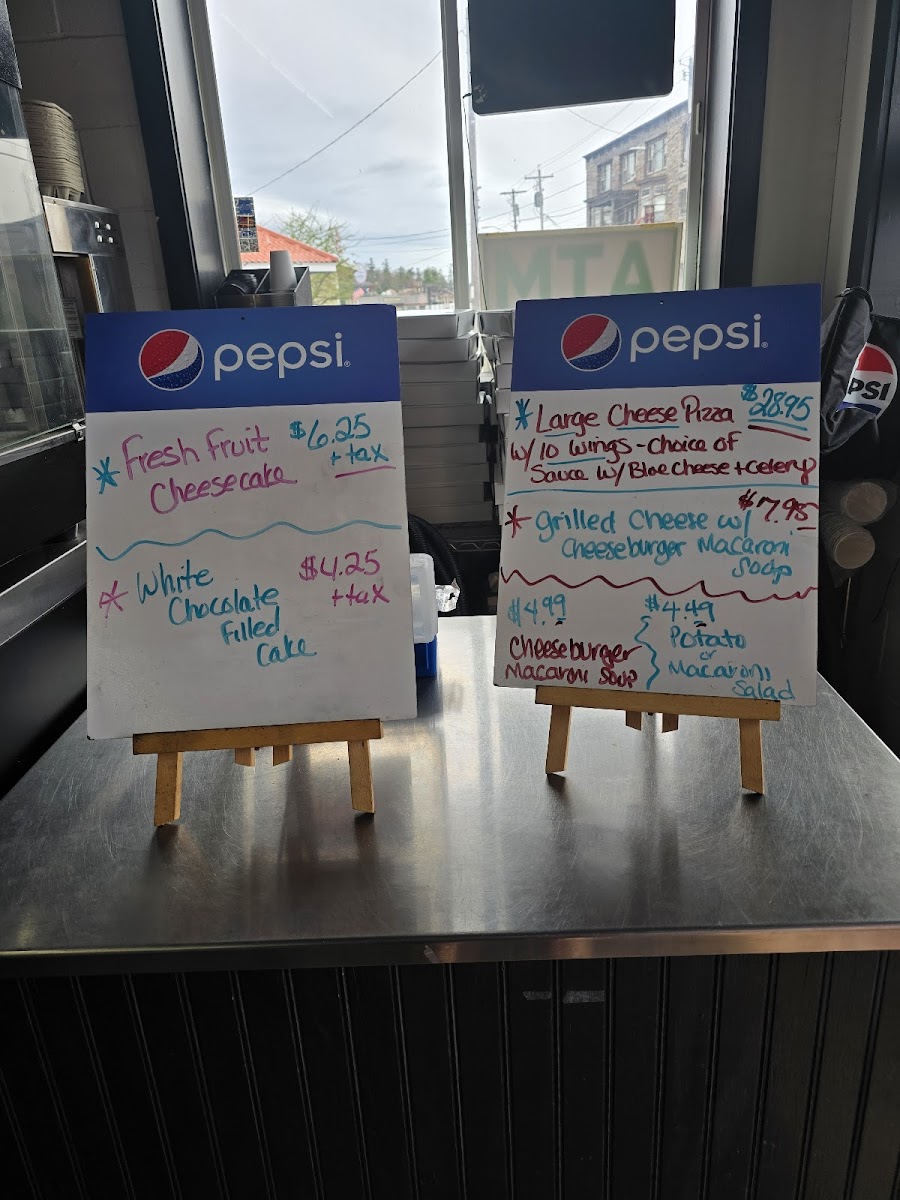 pepsi
* Fresh Fruit $6.25
Cheesecake + tax
* White $4.25
Chocolate + tax
Filled
Cake
pepsi
* Large Cheese Pizza $28.95
w/ 10 wings - choice of
Sauce w/ Blue cheese + celery
$7.95
* grilled cheese w/
cheeseburger Macaroni
Soup
$4.99
cheeseburger
Macaroni Soup
$4.49
Potato
or
Macaroni
Salad
ATM
PSI